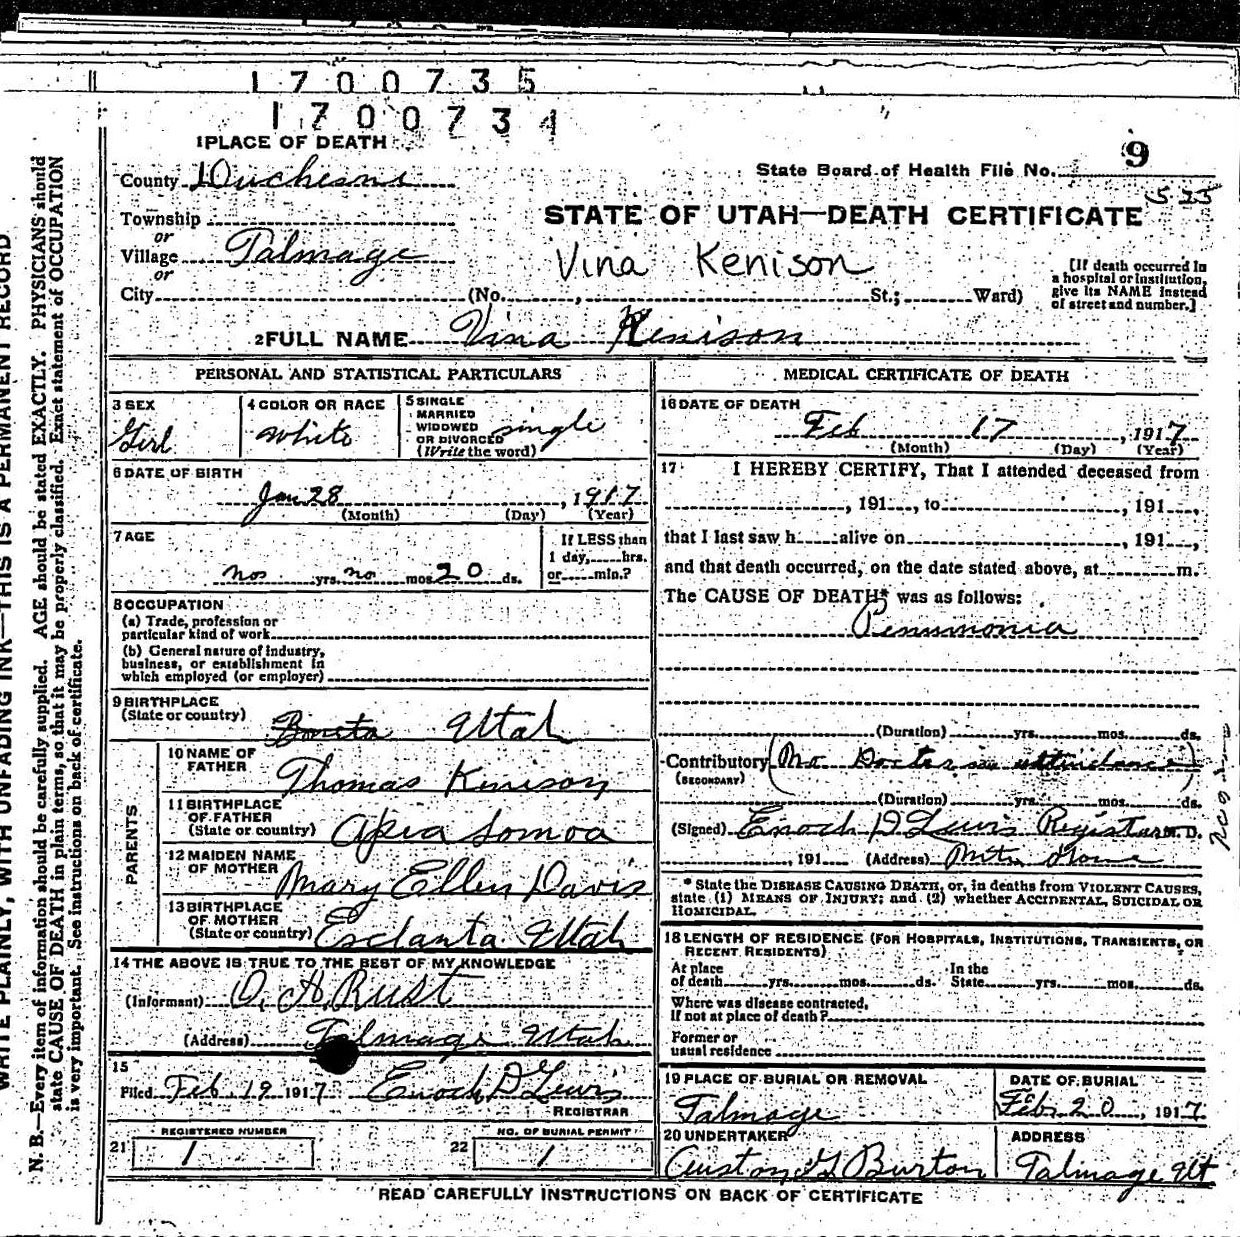 1700735
1700734
1 PLACE OF DEATH
County Duchesne
State Board of Health File No. 9
525
STATE OF UTAH—DEATH CERTIFICATE
Township
or
Village Talmage
or
Vina Kenison
City (No. , St.; Ward)
[If death occurred in a hospital or institution, give its NAME instead of street and number.]
2 FULL NAME Vina Kenison
PERSONAL AND STATISTICAL PARTICULARS
3 SEX Girl
4 COLOR OR RACE white
5 SINGLE MARRIED WIDOWED OR DIVORCED (Write the word) single
6 DATE OF BIRTH
Jan 28, 1917
(Month) (Day) (Year)
7 AGE
nos yrs. no mos. 20 ds.
If LESS than 1 day, hrs. or min.?
8 OCCUPATION
(a) Trade, profession or particular kind of work
(b) General nature of industry, business, or establishment in which employed (or employer)
9 BIRTHPLACE (State or country) Boneta Utah
PARENTS
10 NAME OF FATHER Thomas Kenison
11 BIRTHPLACE OF FATHER (State or country) Apia Somoa
12 MAIDEN NAME OF MOTHER Mary Ellen Davis
13 BIRTHPLACE OF MOTHER (State or country) Esclanta Utah
14 THE ABOVE IS TRUE TO THE BEST OF MY KNOWLEDGE
(Informant) O. H. Rust
(Address) Talmage Utah
15
Filed Feb 19 1917 Enoch D Lewis
REGISTRAR
21 REGISTERED NUMBER 1
22 NO. OF BURIAL PERMIT 1
MEDICAL CERTIFICATE OF DEATH
16 DATE OF DEATH
Feb 17, 1917
(Month) (Day) (Year)
17 I HEREBY CERTIFY, That I attended deceased from
, 191 , to , 191 ,
that I last saw h alive on , 191 ,
and that death occurred, on the date stated above, at m.
The CAUSE OF DEATH* was as follows:
Penumonia
(Duration) yrs. mos. ds.
Contributory (No Doctor in attendance)
(SECONDARY)
(Duration) yrs. mos. ds.
(Signed) Enoch D Lewis Registrar M.D.
, 191 (Address) Mtn Home
* State the DISEASE CAUSING DEATH, or, in deaths from VIOLENT CAUSES, state (1) MEANS OF INJURY; and (2) whether ACCIDENTAL, SUICIDAL OR HOMICIDAL.
18 LENGTH OF RESIDENCE (FOR HOSPITALS, INSTITUTIONS, TRANSIENTS, OR RECENT RESIDENTS)
At place of death yrs. mos. ds. In the State yrs. mos. ds.
Where was disease contracted, If not at place of death?
Former or usual residence
19 PLACE OF BURIAL OR REMOVAL
Talmage
DATE OF BURIAL
Feb. 20, 1917
20 UNDERTAKER
Auston G Burton
ADDRESS
Talmage Ut
READ CAREFULLY INSTRUCTIONS ON BACK OF CERTIFICATE
WRITE PLAINLY, WITH UNFADING INK—THIS IS A PERMANENT RECORD
N. B.—Every item of information should be carefully supplied. AGE should be stated EXACTLY. PHYSICIANS should
state CAUSE OF DEATH in plain terms, so that it may be properly classified. Exact statement of OCCUPATION
is very important. See instructions on back of certificate.